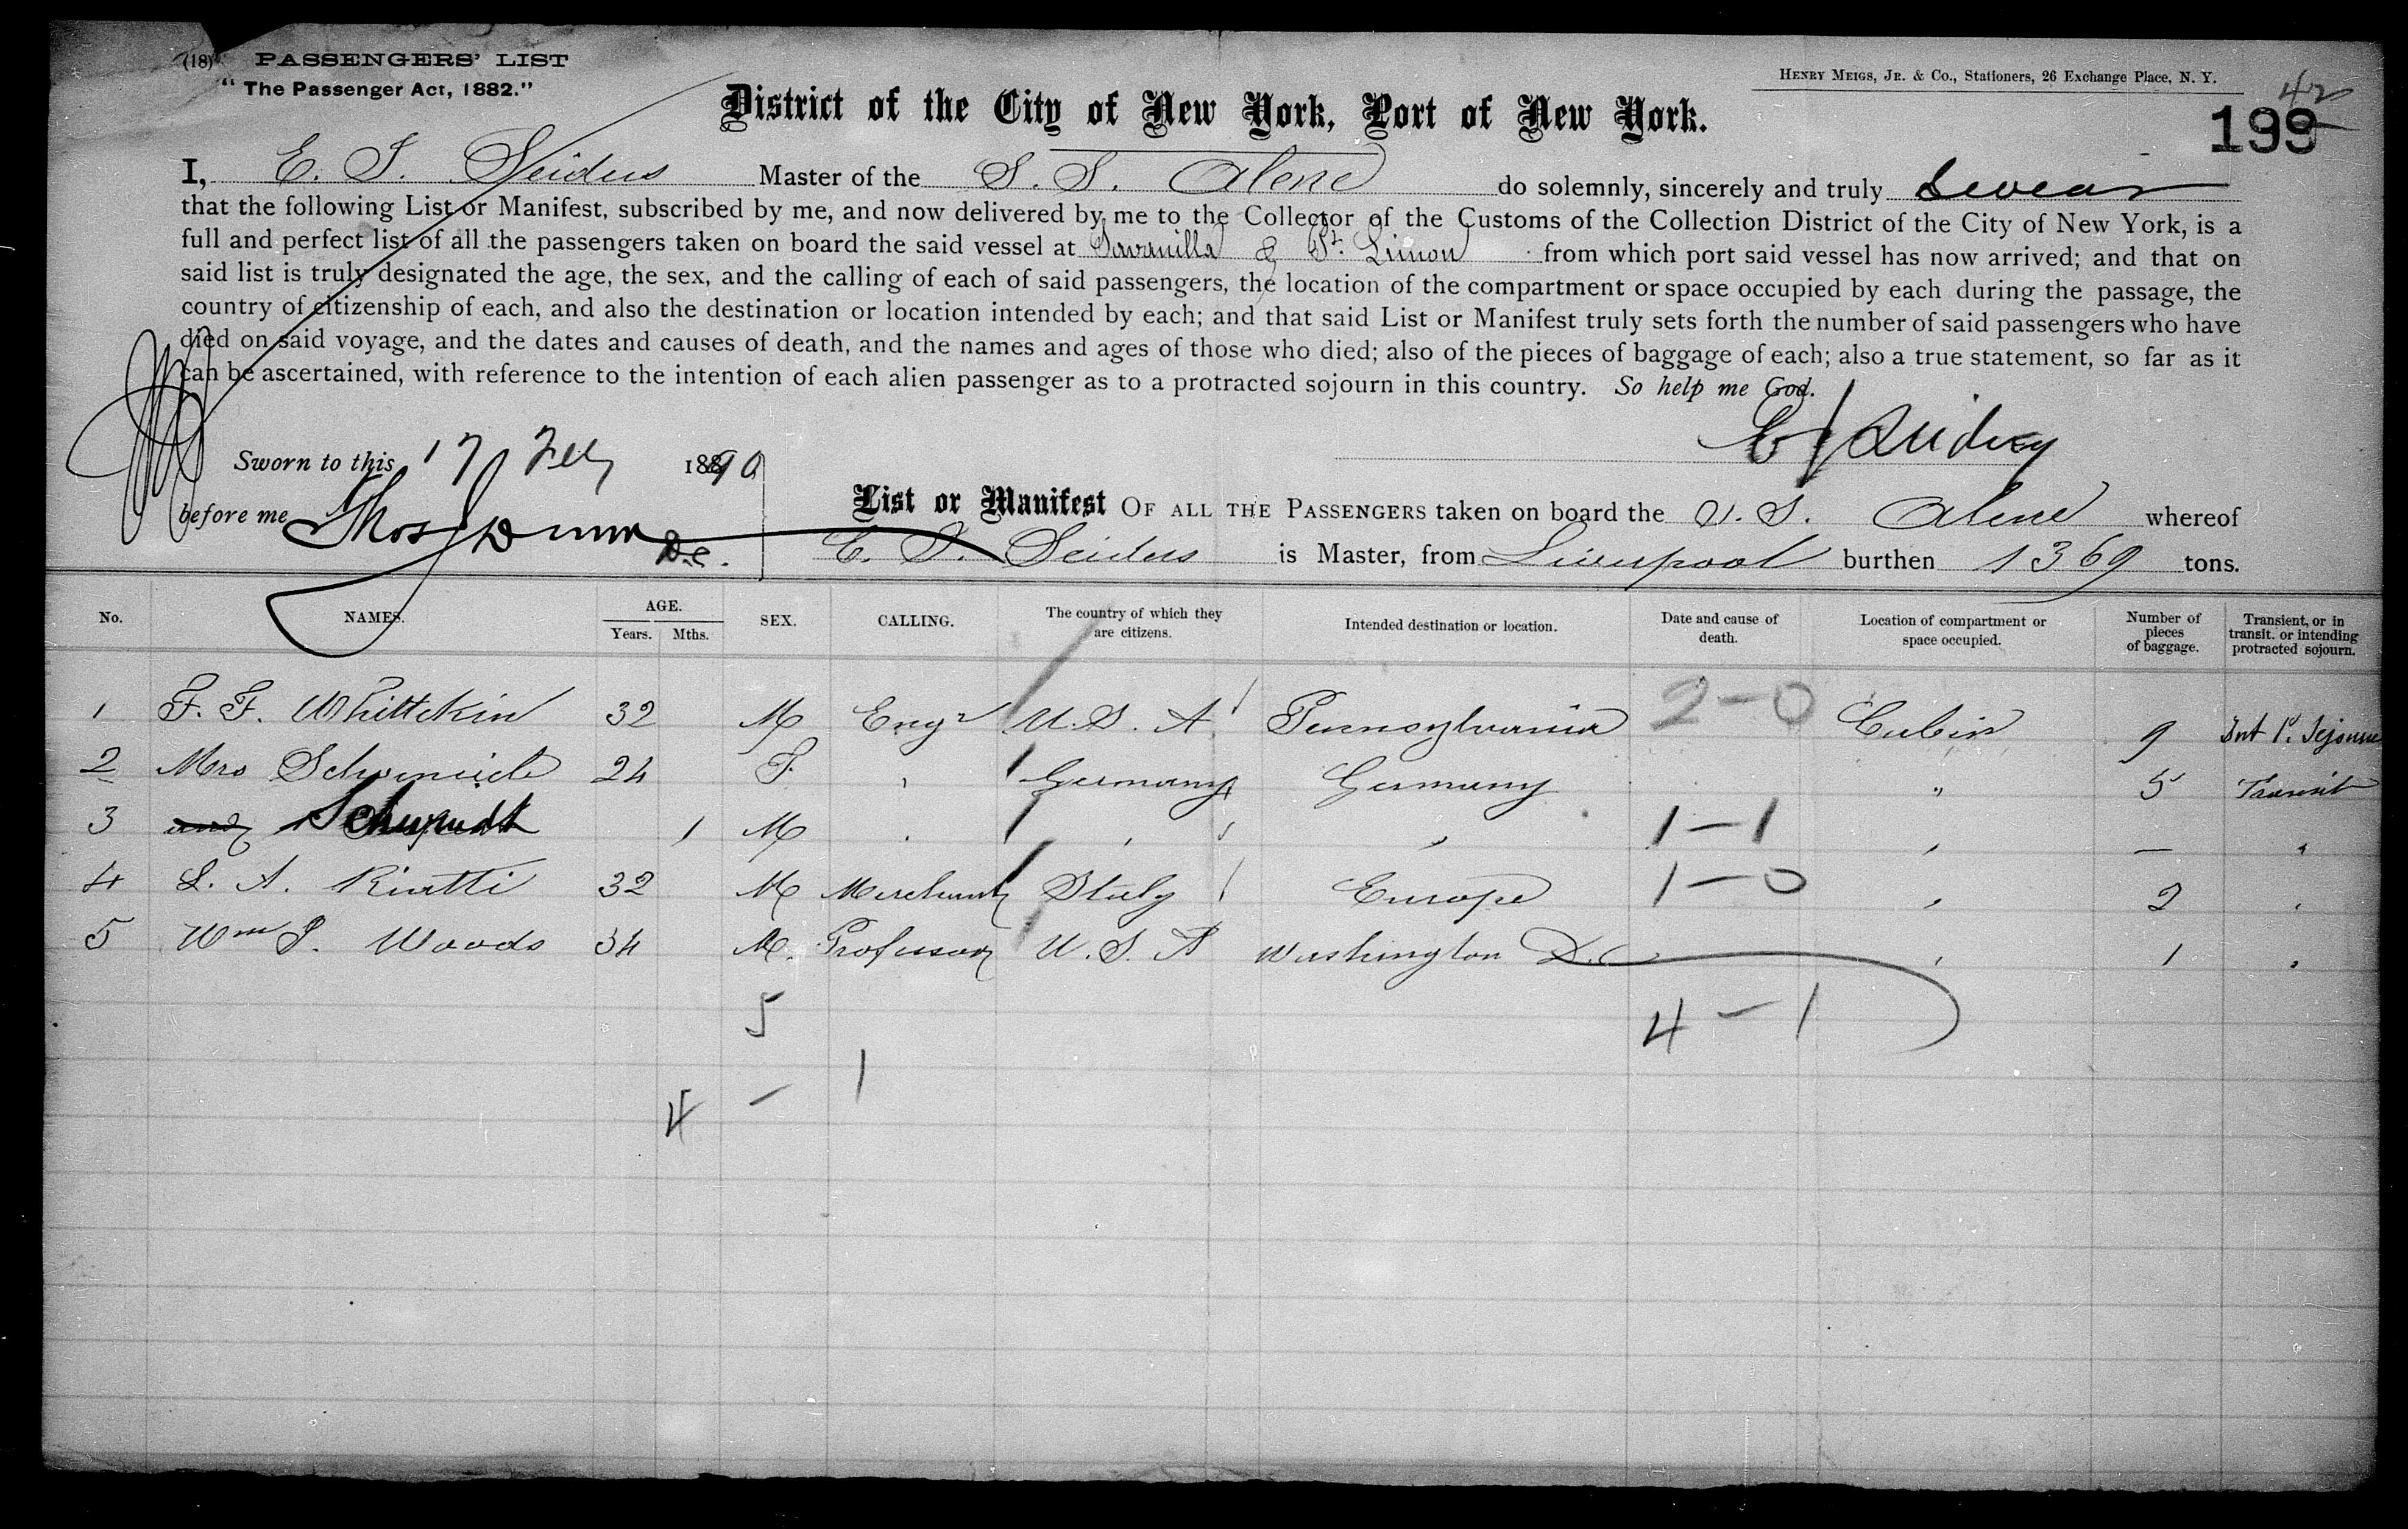 (18) PASSENGERS' LIST
"The Passenger Act, 1882."
HENRY MEIGS, JR. & Co., Stationers, 26 Exchange Place, N. Y.
42
199
District of the City of New York, Port of New York.
I, E. F. Seiders Master of the S. S. Alene do solemnly, sincerely and truly swear
that the following List or Manifest, subscribed by me, and now delivered by me to the Collector of the Customs of the Collection District of the City of New York, is a
full and perfect list of all the passengers taken on board the said vessel at Savanilla & Pt. Limon from which port said vessel has now arrived; and that on
said list is truly designated the age, the sex, and the calling of each of said passengers, the location of the compartment or space occupied by each during the passage, the
country of citizenship of each, and also the destination or location intended by each; and that said List or Manifest truly sets forth the number of said passengers who have
died on said voyage, and the dates and causes of death, and the names and ages of those who died; also of the pieces of baggage of each; also a true statement, so far as it
can be ascertained, with reference to the intention of each alien passenger as to a protracted sojourn in this country. So help me God.
Sworn to this 17 Feby 1890
before me Thos Dunn D.C.
List or Manifest OF ALL THE PASSENGERS taken on board the S. S. Alene whereof
E. F. Seiders is Master, from Liverpool burthen 1369 tons.
No. NAMES. AGE. Years. Mths. SEX. CALLING. The country of which they are citizens. Intended destination or location. Date and cause of death. Location of compartment or space occupied. Number of pieces of baggage. Transient, or in transit. or intending protracted sojourn.
1 F. F. Whittekin 32 M Engr U. S. A. Pennsylvania 2-0 Cabin 9 Int P. Sejourn
2 Mrs 24 F. " Germany Germany " 5 Transit
3 and Schmidt 1 M " " " 1-1 " — "
4 L. A. 32 M Merchant Italy Europe 1-0 " 2 "
5 Wm J. Woods 34 M. Professor U. S. A Washington D.C " 1 "
5
4-1
4 - 1